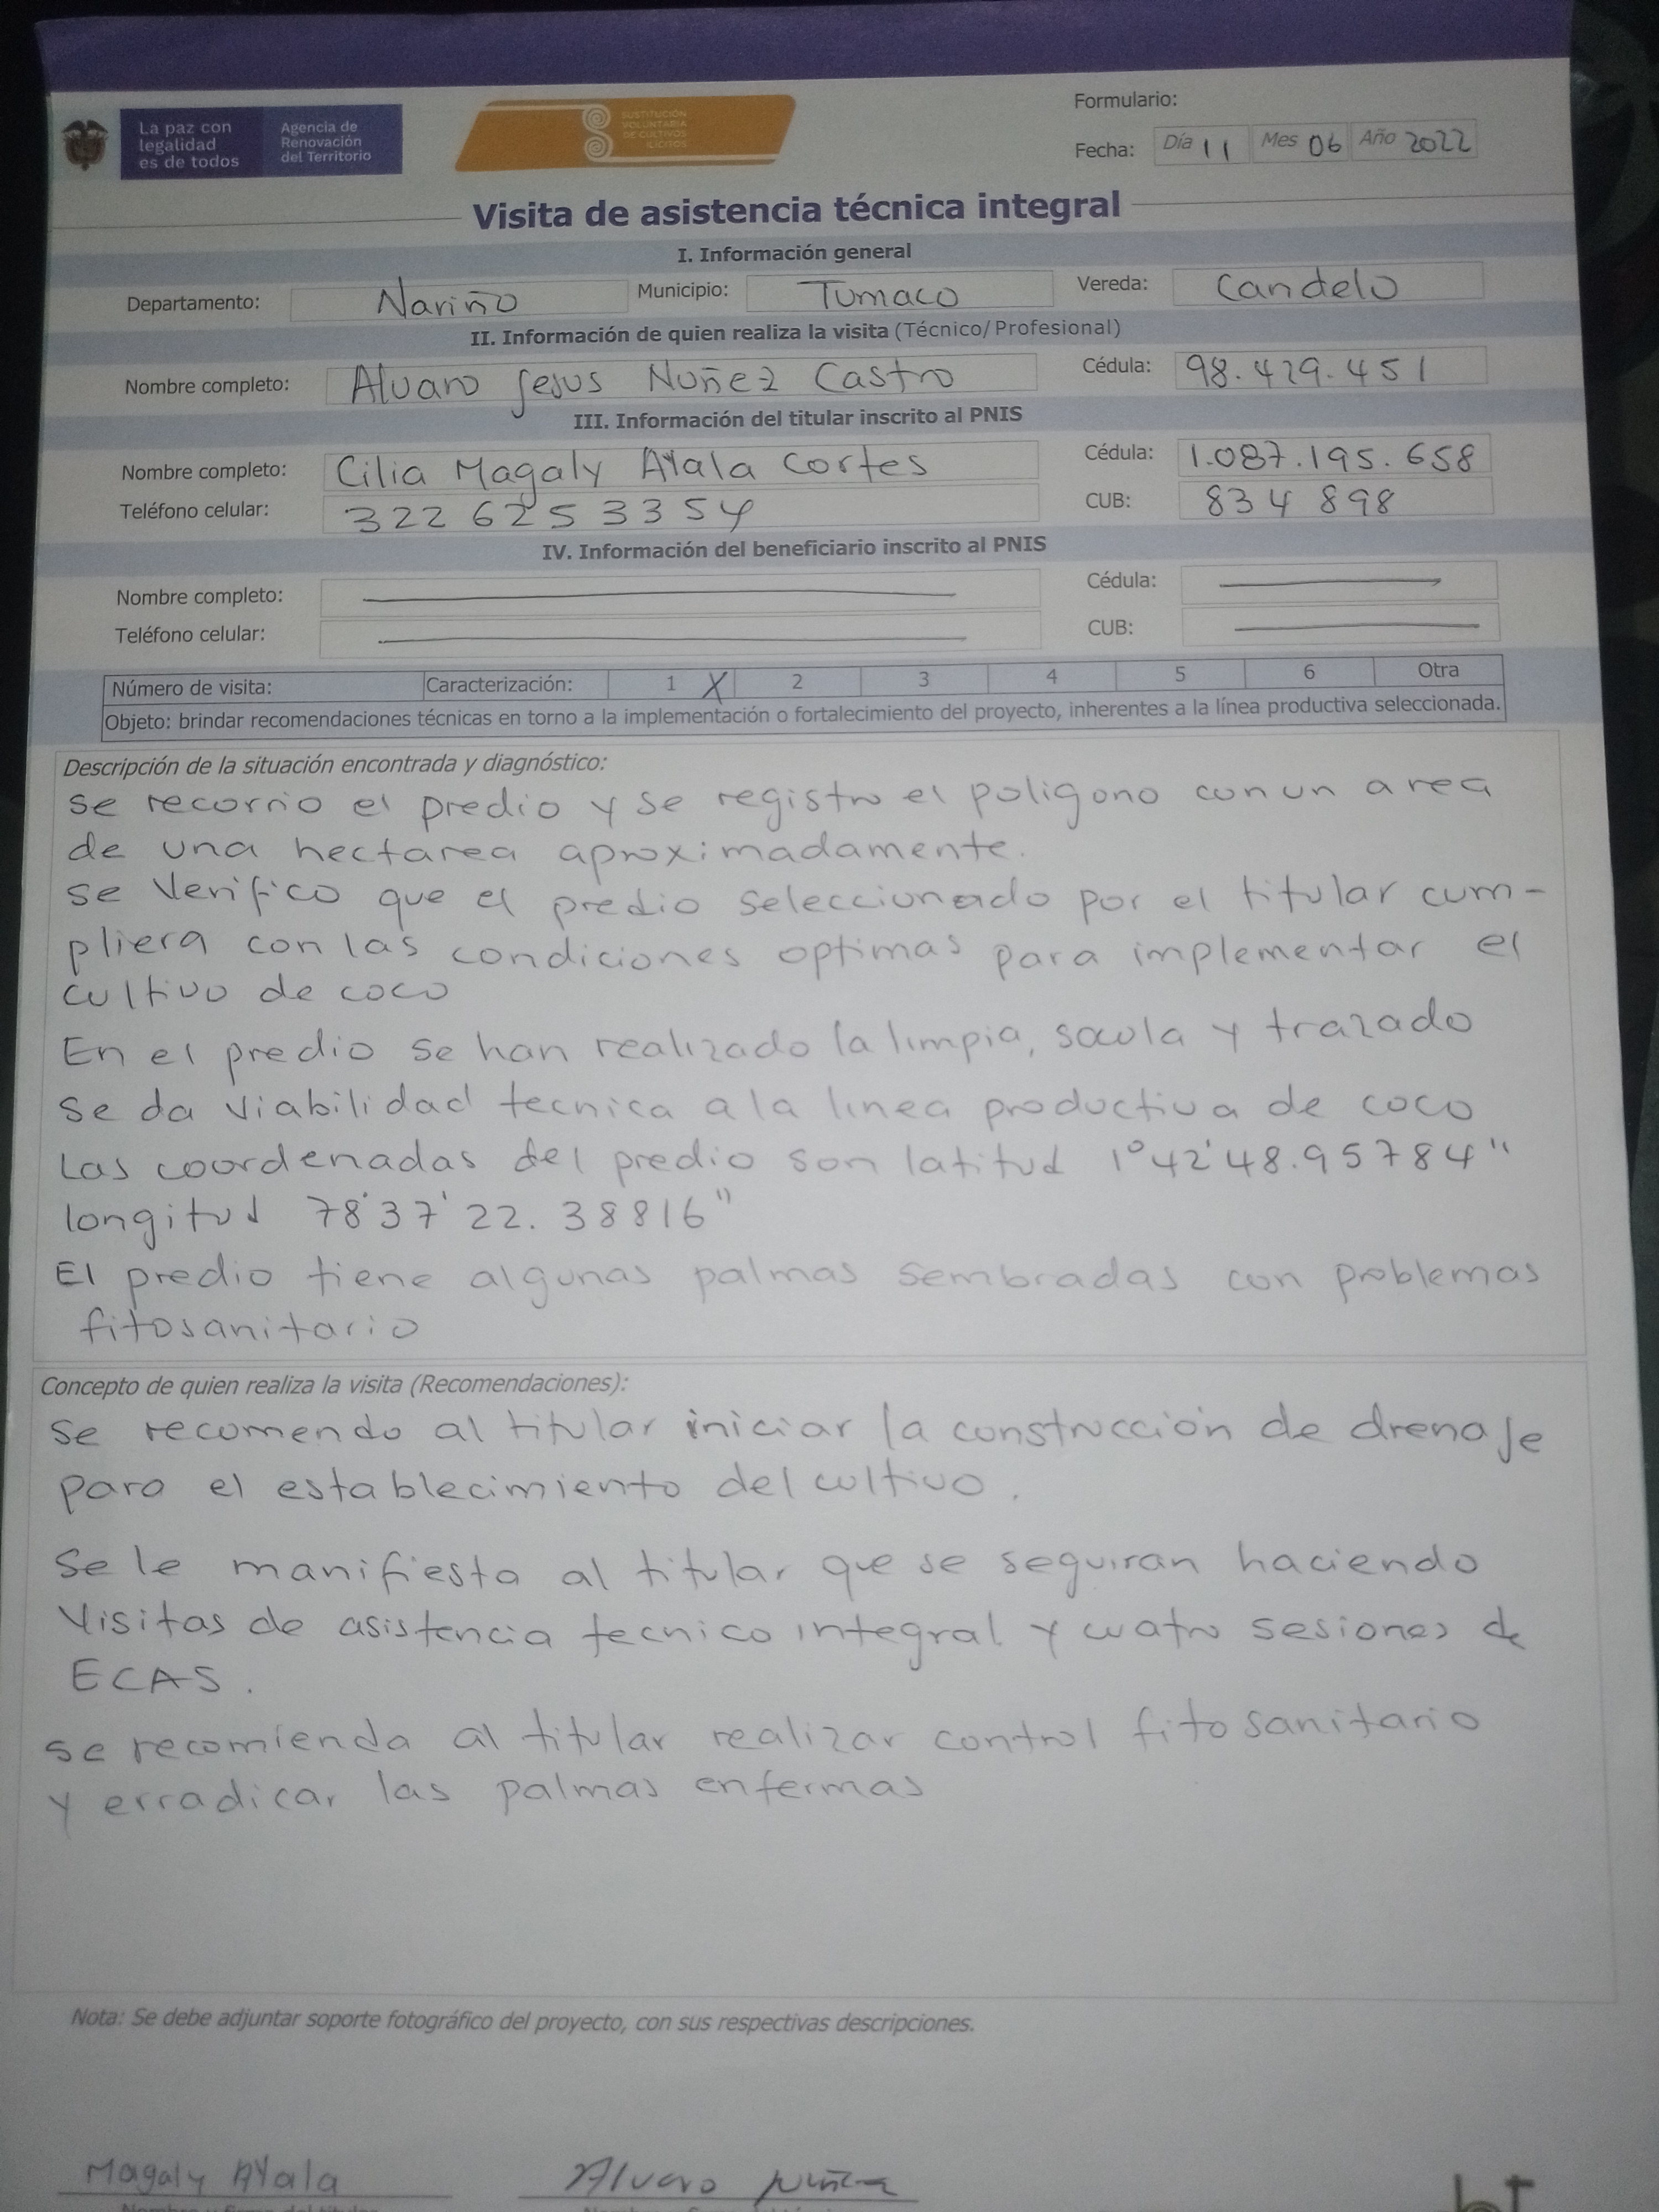 La paz con
legalidad
es de todos
Agencia de
Renovación
del Territorio
SUSTITUCIÓN
VOLUNTARIA
DE CULTIVOS
ILÍCITOS
Formulario:
Fecha: Día 11 Mes 06 Año 2022
Visita de asistencia técnica integral
I. Información general
Departamento: Nariño Municipio: Tumaco Vereda: Candelo
II. Información de quien realiza la visita (Técnico/Profesional)
Nombre completo: Alvaro Jesus Nuñez Castro Cédula: 98.429.451
III. Información del titular inscrito al PNIS
Nombre completo: Cilia Magaly Ayala Cortes Cédula: 1.087.195.658
Teléfono celular: 322 6253354 CUB: 834 898
IV. Información del beneficiario inscrito al PNIS
Nombre completo: Cédula:
Teléfono celular: CUB:
Número de visita: Caracterización: 1 X 2 3 4 5 6 Otra
Objeto: brindar recomendaciones técnicas en torno a la implementación o fortalecimiento del proyecto, inherentes a la línea productiva seleccionada.
Descripción de la situación encontrada y diagnóstico:
se recorrio el predio y se registro el poligono con un area
de una hectarea aproximadamente.
se Verifico que el predio seleccionado por el titular cum-
pliera con las condiciones optimas para implementar el
cultivo de coco
En el predio se han realizado la limpia, socola y trazado
se da viabilidad tecnica a la linea productiva de coco
Las coordenadas del predio son latitud 1°42'48.95784"
longitud 78°37'22.38816"
El predio tiene algunas palmas sembradas con problemas
fitosanitario
Concepto de quien realiza la visita (Recomendaciones):
se recomendo al titular iniciar la construcción de drenaje
para el establecimiento del cultivo.
Se le manifiesta al titular que se seguiran haciendo
Visitas de asistencia tecnico integral y cuatro sesiones de
ECAS.
se recomienda al titular realizar control fitosanitario
y erradicar las palmas enfermas
Nota: Se debe adjuntar soporte fotográfico del proyecto, con sus respectivas descripciones.
Magaly Ayala Alvaro Nuñez